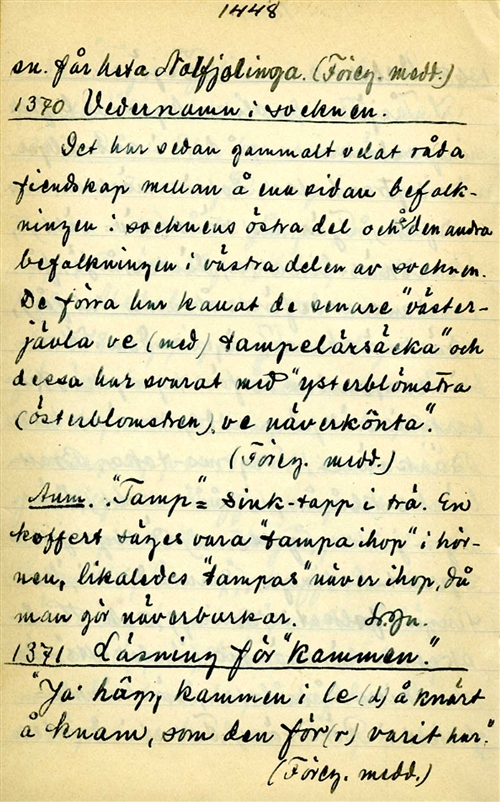 1448
sn. får heta Nolfjolinga. (Föreg. medd.)
1370 Vedernamn i socknen.
Det har sedan gammalt velat råda
fiendskap mellan å ena sidan befolk-
ningen i socknens östra del och å den andra
befolkningen i västra delen av socknen.
De förra har kallat de senare "väster-
jävla ve (med) tampelärsäcka" och
dessa har svarat med "ysterblömstra
(österblomstren), ve näverkönta".
(Föreg. medd.)
Anm. "Tamp" = sink-tapp i trä. En
koffert säges vara "tampa ihop" i hör-
nen, likaledes "tampas" näver ihop, då
man gör näverburkar.
1371 Läsning för "kammen".
"Ja hägg, kammen i le(d) å knärt
å knam, som den för(r) varit har."
(Föreg. medd.)